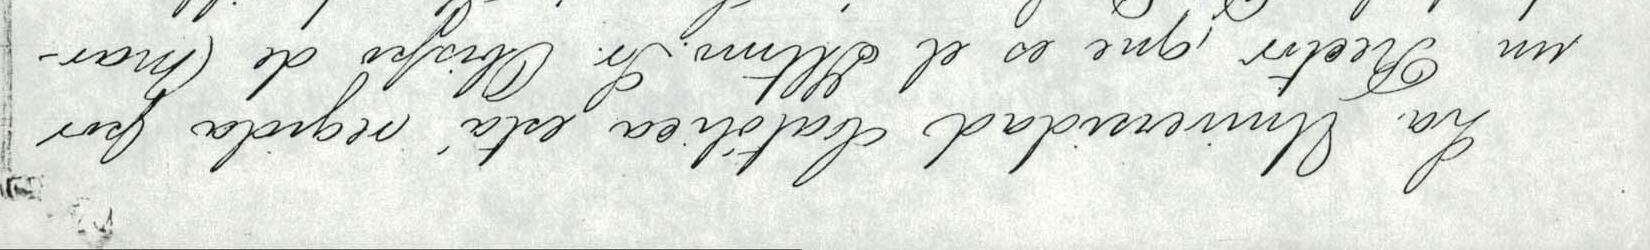 La Universidad Católica está regida por
un Rector, que es el Illtmo. Sr. Obispo de Mar-